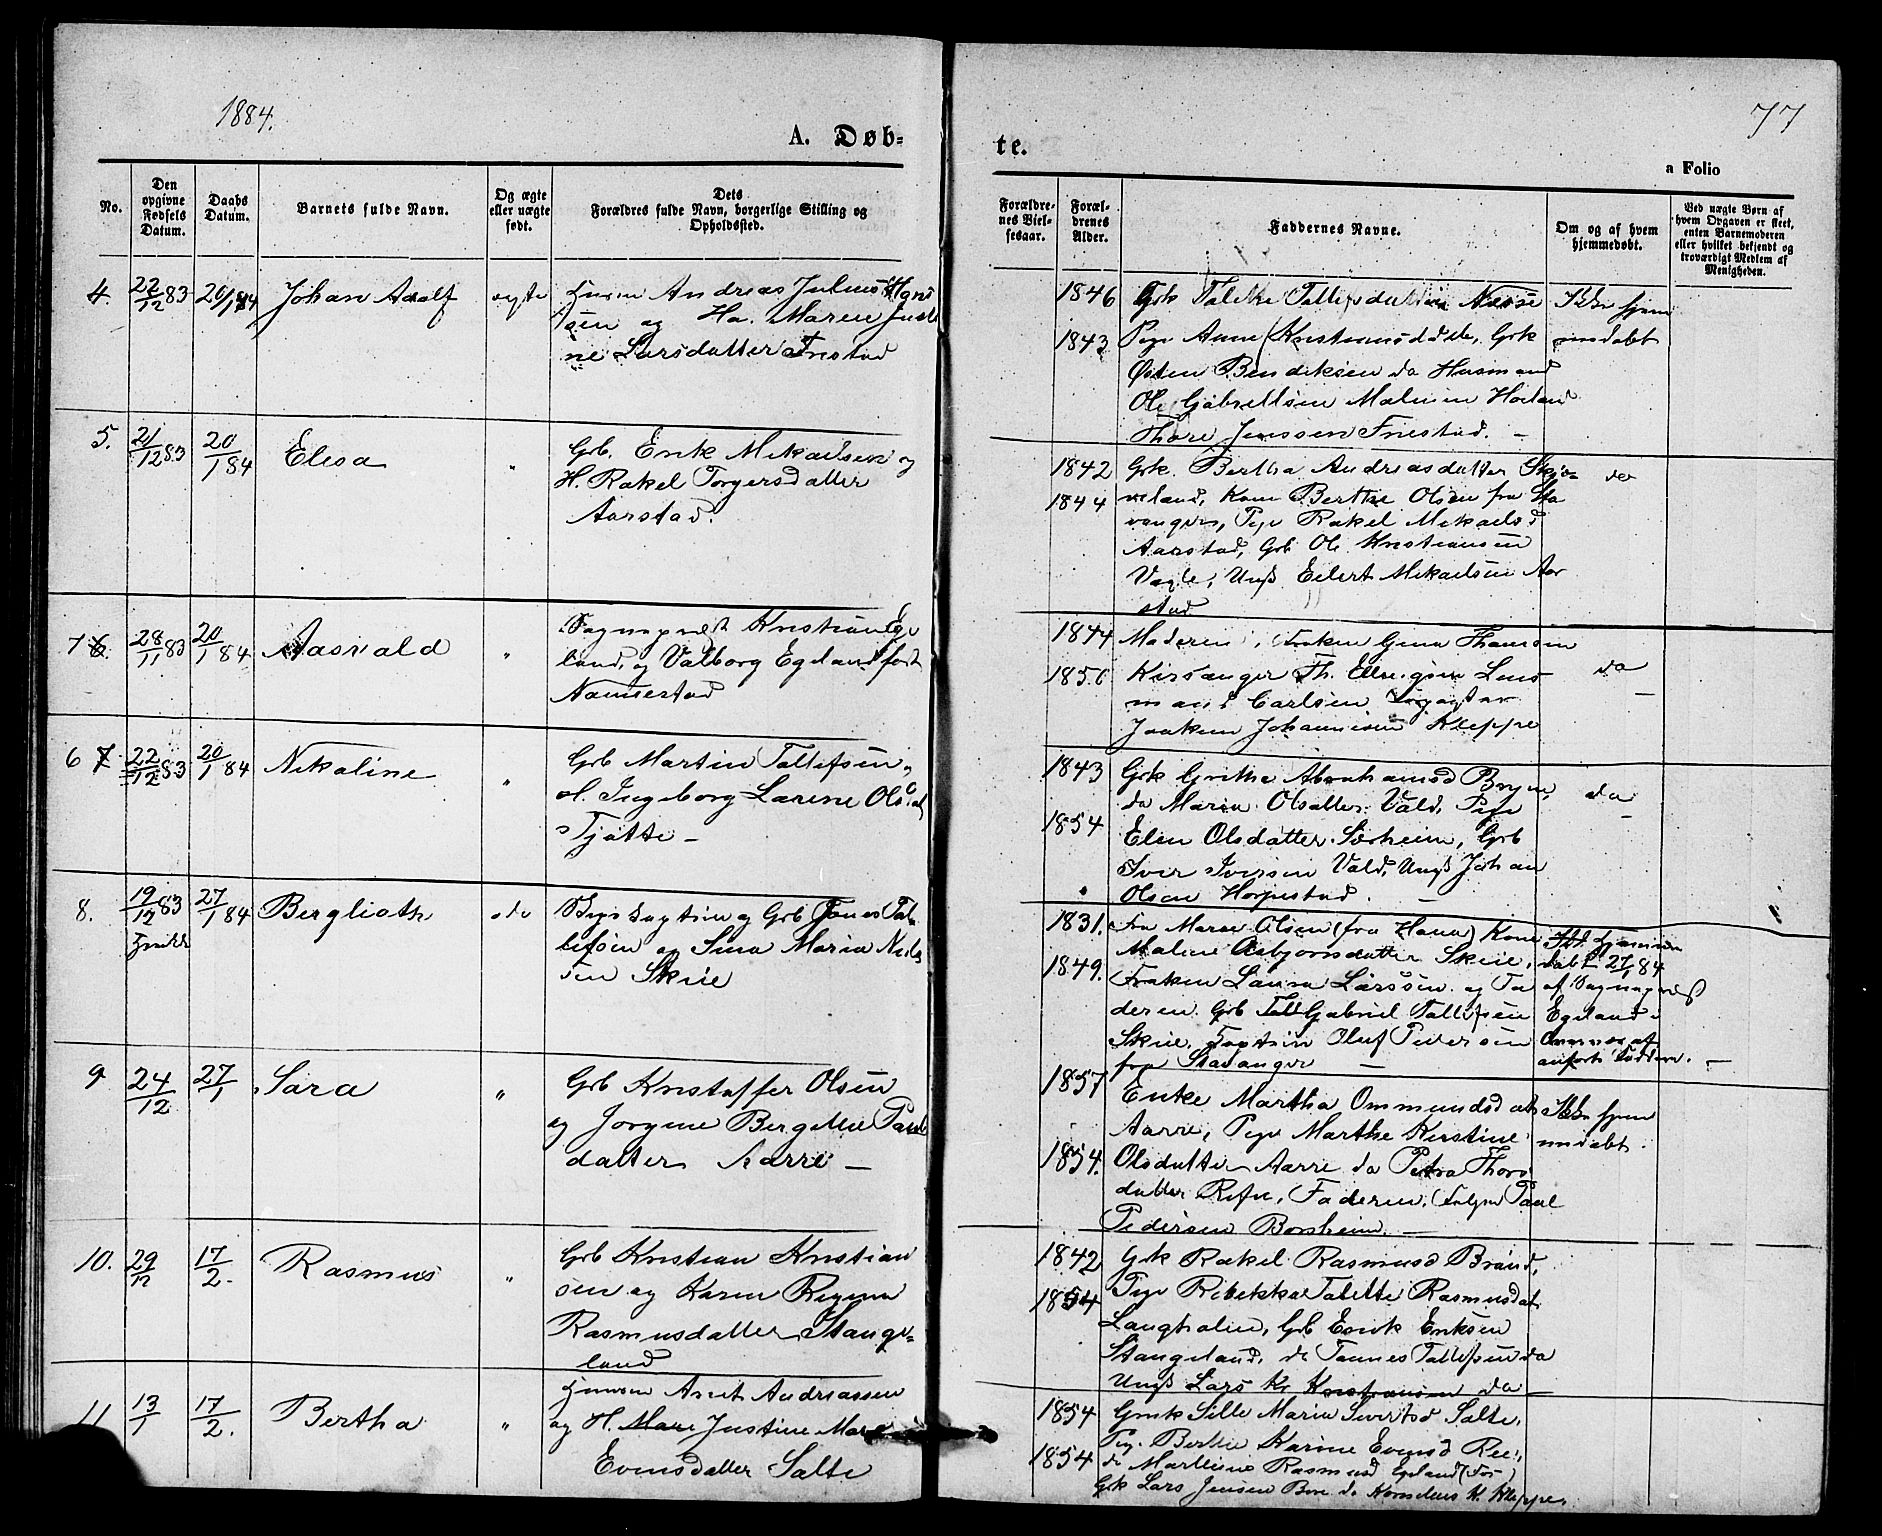 1884.
77
A. Døb=
te.
a Folio
No.
Den opgivne Fødsels Datum.
Daabs Datum.
Barnets fulde Navn.
Og ægte eller uægte født.
Dets Forældres fulde Navn, borgerlige Stilling og Opholdssted.
Forældrenes Vielsesaar.
Forældrenes Alder.
Faddernes Navne.
Om og af hvem hjemmedøbt.
Ved uægte Børn af hvem Opgaven er skeet, enten Barnemoderen eller hvilket bekjendt og troværdigt Medlem af Menigheden.
4. 22/12 83 20/1 84 Johan Adolf ægte
Andreas Julius
sen og Hu. Maren Justi
ne Larsdatter Friestad
1846
1843
Grk
Pige Anne Kristensd do, Grk
Østen Bendiksen do Husmand
Ole Gabrielsen Malmin Høiland
Thore Jenssen Friestad. -
Ikke hjem
medøbt
5. 21/12 83 20/1 84 Elisa "
Grb. Erik Mikaelsen og
H. Rakel Torgersdatter
Aarstad.
1842
1844
Grk. Bertha Andreasdatter Skjæ-
veland, Kone Berthe Olsen fra Sta
vanger, Pige Rakel Mikaelsd
Aarstad, Grb Ole Kristiansen
Vagle, Ungk Eilert Mikaelsen Aar
stad
do
7 6. 28/11 83 20/1 84 Aasvald "
Sognepræst Kristian Ege
land, og Valborg Egeland født
1844
1850
Moderen, Frøken Gina Thomsen
Kirsanger Th. Ellingsen Lens
mand Carlsen
Joakim Johannesen Kleppe
do -
6 7 22/12 83 20/1 84 Nikoline "
Grb Martin Tollefsen,
H. Ingeborg Larine Olsd
Tjøtte -
1843
1854
Grk Grethe Abrahamsd Bryne,
do Maria Olsdatter Vold, Pige
Elen Olsdatter Sørheim, Grb
Iver Iversen Vold, Ungk Johan
Olsen Horpestad. -
do -
8. 19/12 83 27/1 84 Berglioth do
og Grb Tønes Tol
lefsen og Sina Maria Niels
sen Skeie
1831.
1849.
Fru Maren Olsen (fra Hana) Kone
Maline Asbjørnsdatter Skeie,
Frøken Laura Larssen og Fa
deren. Grb Gabriel Tollefsen
Skeie, Oluf Pedersen
fra Stavanger -
døbt 27/1 84
af Sognepræst
Egeland
9 24/12 27/1 Sara "
Grb Kristoffer Olsen
og Jorgine Bergitte Pauls
datter Aarre -
1857
1854.
Enke Martha Ommundsdat
Aarre, Pige Marthe Kirstine
Olsdatter Aarre do Petra Thors
datter Refne, Faderen, Paul
Pedersen Borsheim. -
Ikke hjem
medøbt.
10. 29/12 17/2. Rasmus "
Grb Kristian Kristian
sen og Karen Regina
Rasmusdatter Stange-
land
1842
1854
Grk Rakel Rasmusd Brønd,
Pige Rebekka Talette Rasmusdat
Langholen, Grb Erik Eriksen
Stangeland, do Tønnes Tollefsen do
Ungk Lars Kr Kristiansen do -
11 13/1 17/2. Bertha "
Arnt Andreassen
og H. Mari Justine Marie
Evensdatter Salte
1854
1854
Grk Sille Maria Sivertsd Salte,
Pige Berthe Karine Evensd Ree,
do Martine Rasmusd Egeland
Grk Lars Jensen Bore do Kornelius K. Kleppe.